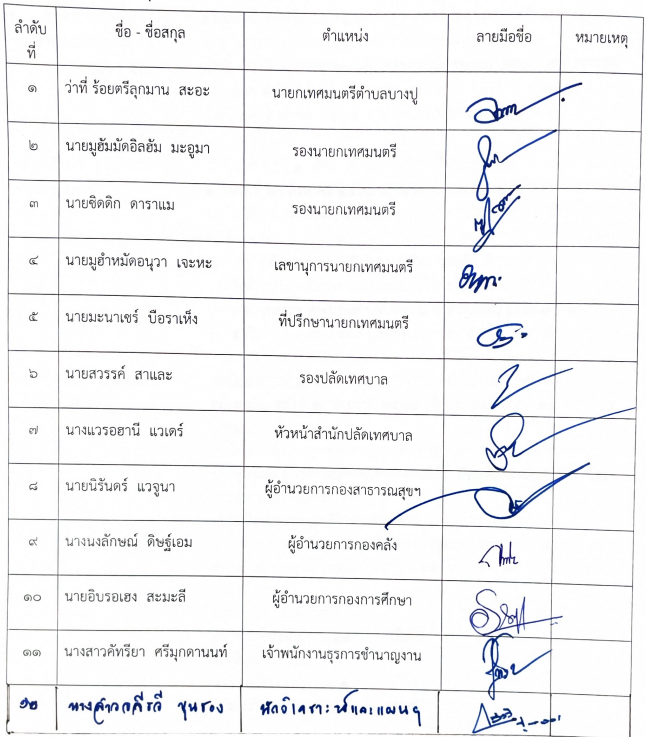 ลำดับ ที่ ชื่อ - ชื่อสกุล ตำแหน่ง ลายมือชื่อ หมายเหตุ
๑ ว่าที่ ร้อยตรีลุกมาน สะอะ นายกเทศมนตรีตำบลบางปู
๒ นายมูฮัมมัดอิลฮัม มะอูมา รองนายกเทศมนตรี
๓ นายซิดดิก ดาราแม รองนายกเทศมนตรี
๔ นายมูฮำหมัดอนุวา เจะหะ เลขานุการนายกเทศมนตรี
๕ นายมะนาเซร์ บือราเห็ง ที่ปรึกษานายกเทศมนตรี
๖ นายสวรรค์ สาและ รองปลัดเทศบาล
๗ นางแวรอฮานี แวเดร์ หัวหน้าสำนักปลัดเทศบาล
๘ นายนิรันดร์ แวจูนา ผู้อำนวยการกองสาธารณสุขฯ
๙ นางนงลักษณ์ ดิษฐ์เอม ผู้อำนวยการกองคลัง
๑๐ นายอิบรอเฮง สะมะลี ผู้อำนวยการกองการศึกษา
๑๑ นางสาวคัทรียา ศรีมุกดานนท์ เจ้าพนักงานธุรการชำนาญงาน
๑๒ นางสาว ขุนรอง นักวิเคราะห์และแผนฯ